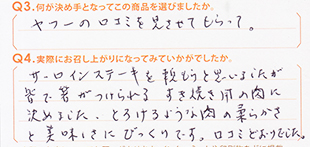 Q3.何が決め手となってこの商品を選びましたか。
ヤフーの口コミを見させてもらって。
Q4.実際にお召し上がりになってみていかがでしたか。
サーロインステーキを頼もうと思いましたが
皆で箸がつけられる すき焼き用の肉に
決めました。とろけるような肉の柔らかさ
と美味しさにびっくりです。口コミどおりでした。